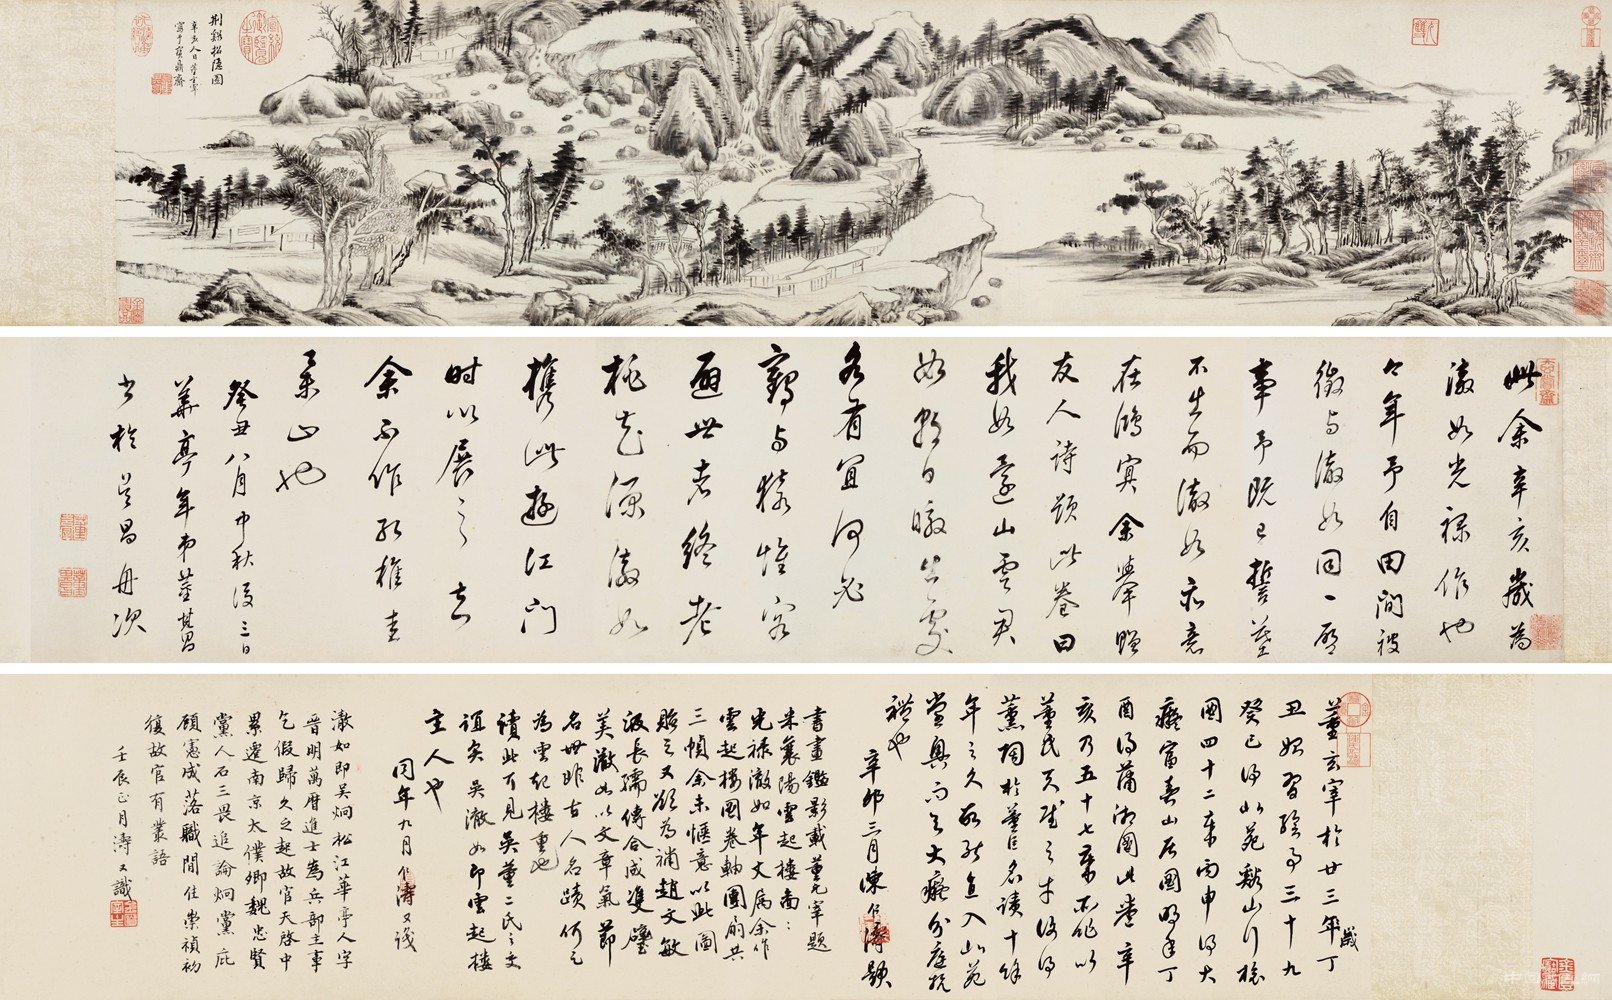 荆谿招隱圖
辛亥人日董玄宰
寫于寶鼎齋
此余辛亥歲為
澈如光祿作也
是年予自田間被
徵與澈如同一啟
事予既已誓墓
不出而澈如亦意
在鴻冥余舉贈
友人詩題此卷曰
我如還山雲君
如朝日暾出處
各有宜何必
鶴與猿惟容
避世者終老
桃花源澈如
攜此遊江門
時以展之知
余不作孔稚圭
也
癸丑八月中秋後三日
華亭年弟董其昌
書於吳昌舟次
董玄宰於廿三年歲丁
丑始習繪事三十九
癸巳得北苑谿山行旅
圖四十二歲丙申得大
癡富春山居圖明年丁
酉得瀟湘圖此卷辛
亥乃五十七歲所作以
董氏天賦之才復得
薰陶於董巨名蹟十餘
年之久故能直入北苑
堂奧而與大癡分庭抗
禮也
辛卯三月陳仁濤題
書畫鑑影載董元宰題
米襄陽雲起樓圖
光祿澈如年丈屬余作
雲起樓圖卷軸團扇共
三幀余未愜意以此圖
貽之又欲為補趙文敏
汲長孺傳合成雙璧
美澈如以文章氣節
名世非古人名蹟何足
為雲起樓重也
讀此可見吳董二氏之交
誼矣吳澈如即雲起樓
主人也
同年九月仁濤又識
澈如即吳炯松江華亭人字
晉明萬曆進士為兵部主事
乞假歸久之起故官天啓中
累遷南京太僕卿魏忠賢
黨人石三畏追論炯黨庇
顧憲成落職閒住崇禎初
復故官有叢語
壬辰正月濤又識